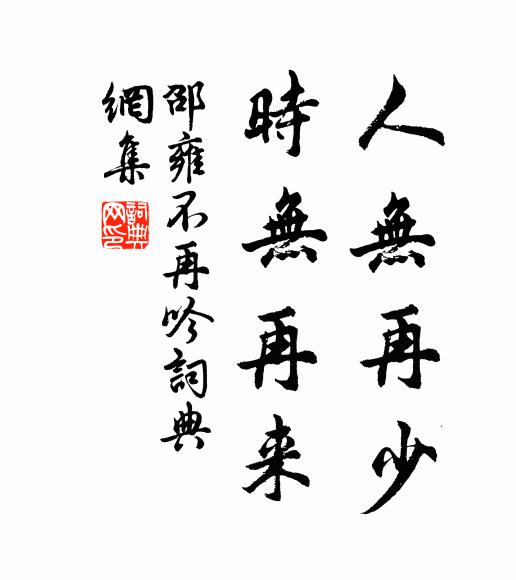 人無再少
時無再来
邵雍不再吟詞典
網集
詞典
网印